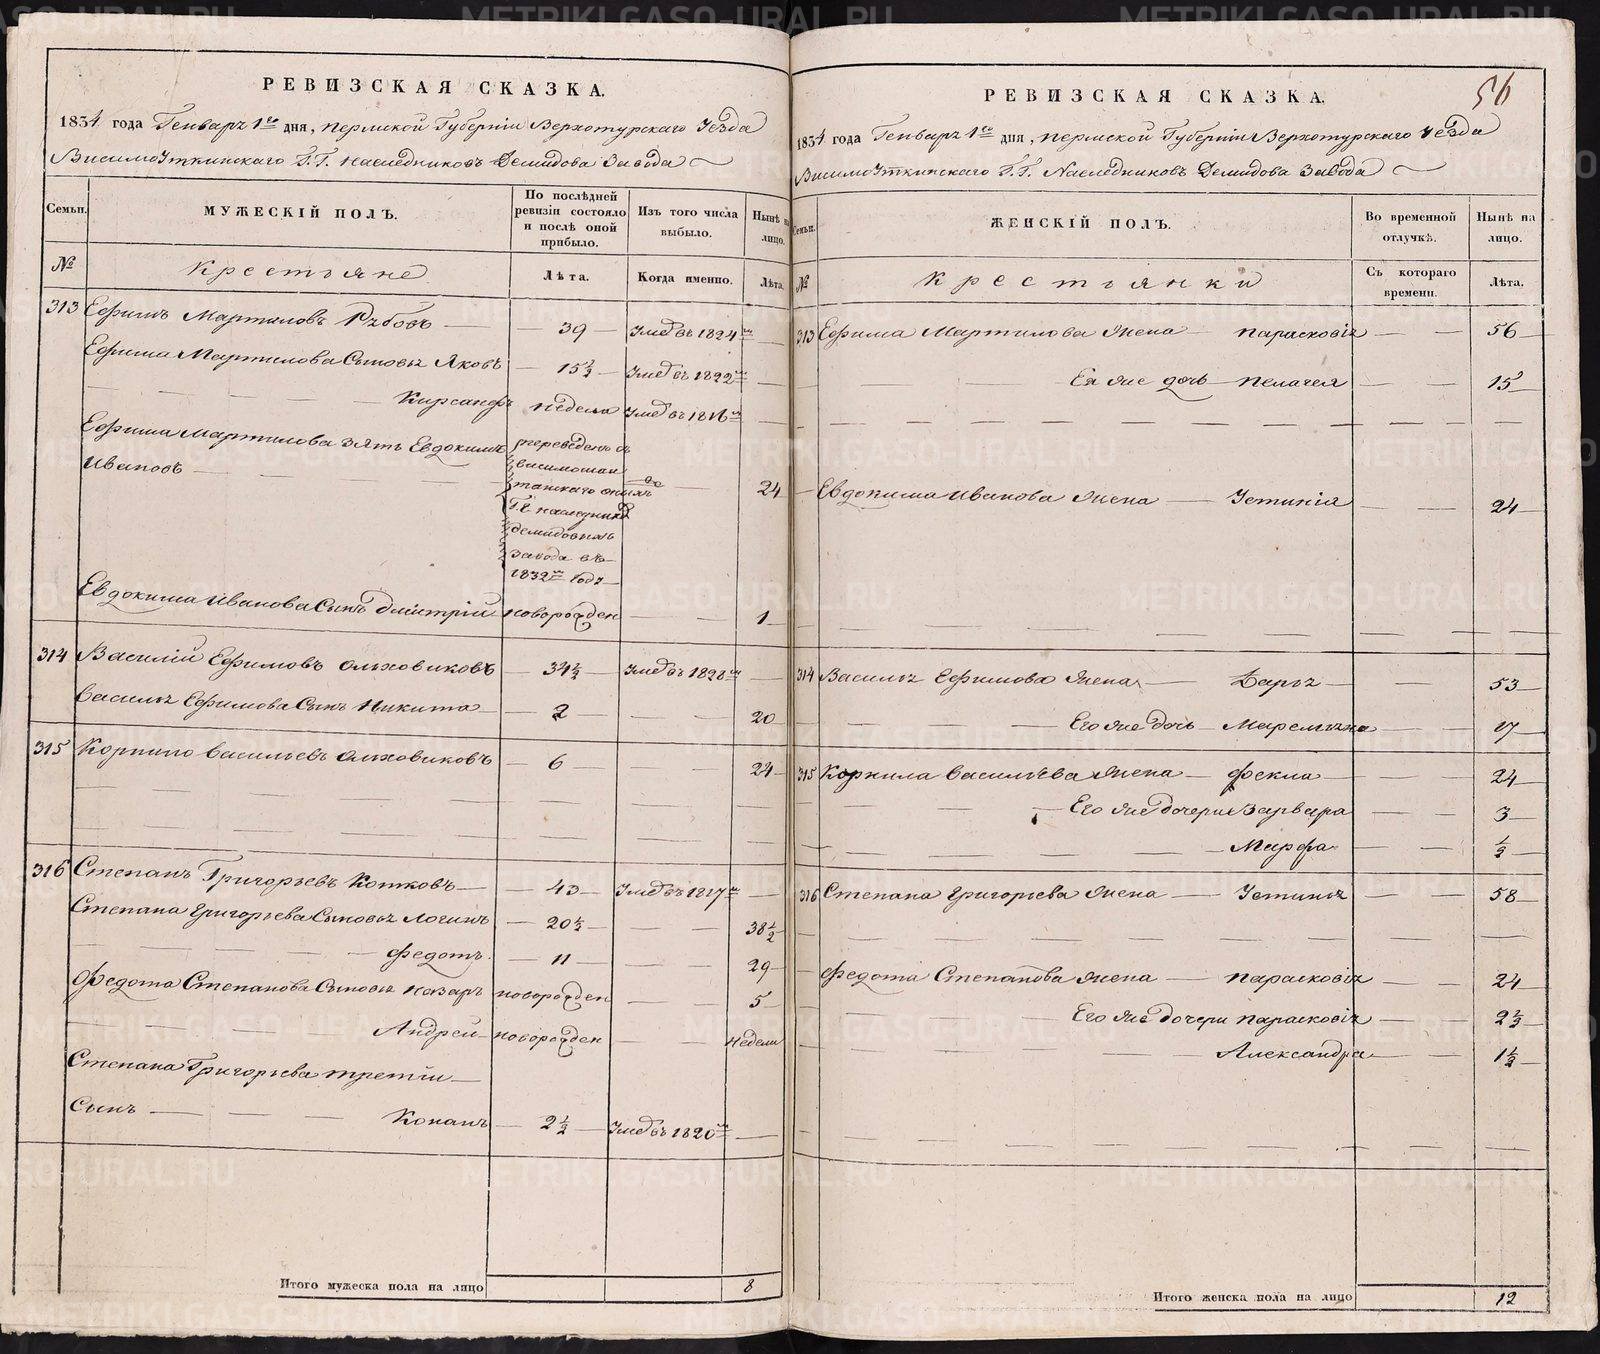 РЕВИЗСКАЯ СКАЗКА.
1834 года Генваря 1го дня, Пермской Губерніи Верхотурскаго Уѣзда
ВисимоУткинскаго Г.Г. Наследниковъ Демидова Завода
Семьи. МУЖЕСКІЙ ПОЛЪ. По послѣдней ревизіи состояло и послѣ оной прибыло. Изъ того числа выбыло. Нынѣ на лицо.
№ Крестьяне Лѣта. Когда именно. Лѣта.
313 Ефимъ Мартиловъ 39 Умевъ 1824м
Ефима Мартилова Сыновья Яковъ 15½ Умевъ 1822м
Кирсанфъ неделя Умевъ 1816м
Ефима Мартилова зять Евдокимъ
Ивановъ 24
переведенъ съ
висимошай
танскаго
Г.г. наследник
демидовыхъ
завода въ
1832м Году
Евдокима Иванова Сынъ Дмитрій новорожден 1
314 Василій Ефимовъ Ольховиковъ 34½ Умевъ 1828м
Василья Ефимова Сынъ Никита 2 20
315 Корнило Васильевъ Ольховиковъ 6 24
316 Степанъ Григорьевъ Котковъ 43 Умевъ 1817м
Степана Григорьева Сыновья Логинъ 20½ 38½
Федотъ 11 29
Федота Степанова Сыновья Назаръ новорожден 5
Андрей новорожден недели
Степана Григорьева третій
Сынъ Конанъ 2½ Умевъ 1820м
Итого мужеска пола на лицо 8
56
РЕВИЗСКАЯ СКАЗКА.
1834 года Генваря 1го дня, Пермской Губерніи Верхотурскаго Уѣзда
ВисимоУткинскаго Г.Г. Наследниковъ Демидова Завода
Семьи. ЖЕНСКІЙ ПОЛЪ. Во временной отлучкѣ. Нынѣ на лицо.
№ Крестьянки Съ котораго времени. Лѣта.
313 Ефима Мартилова Жена Парасковія 56
Ея же дочь Пелагея 15
Евдокима Иванова Жена Устинія 24
314 Василья Ефимова Жена Дарья 53
Его же дочь Маремьяна 17
315 Корнила Васильева Жена Фекла 24
Его же дочери Варвара 3
Марфа ½
316 Степана Григорьева Жена Устинья 58
Федота Степанова Жена Парасковія 24
Его же дочери Парасковія 2½
Александра 1½
Итого женска пола на лицо 12
METRIKI.GASO-URAL.RU